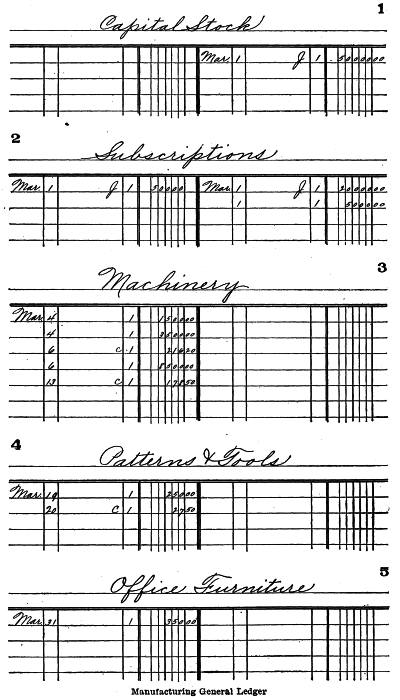 1
Capital Stock
Mar. 1 J 1 5000000
2
Subscriptions
Mar. 1 J 1 50000 Mar. 1 J 1 2000000
1 1 500000
3
Machinery
Mar. 4 1 150000
4 1 350000
6 C 1 21620
6 1 850000
13 C 1 17850
4
Patterns & Tools
Mar. 19 1 25000
20 C 1 2750
5
Office Furniture
Mar. 31 1 35000
Manufacturing General Ledger